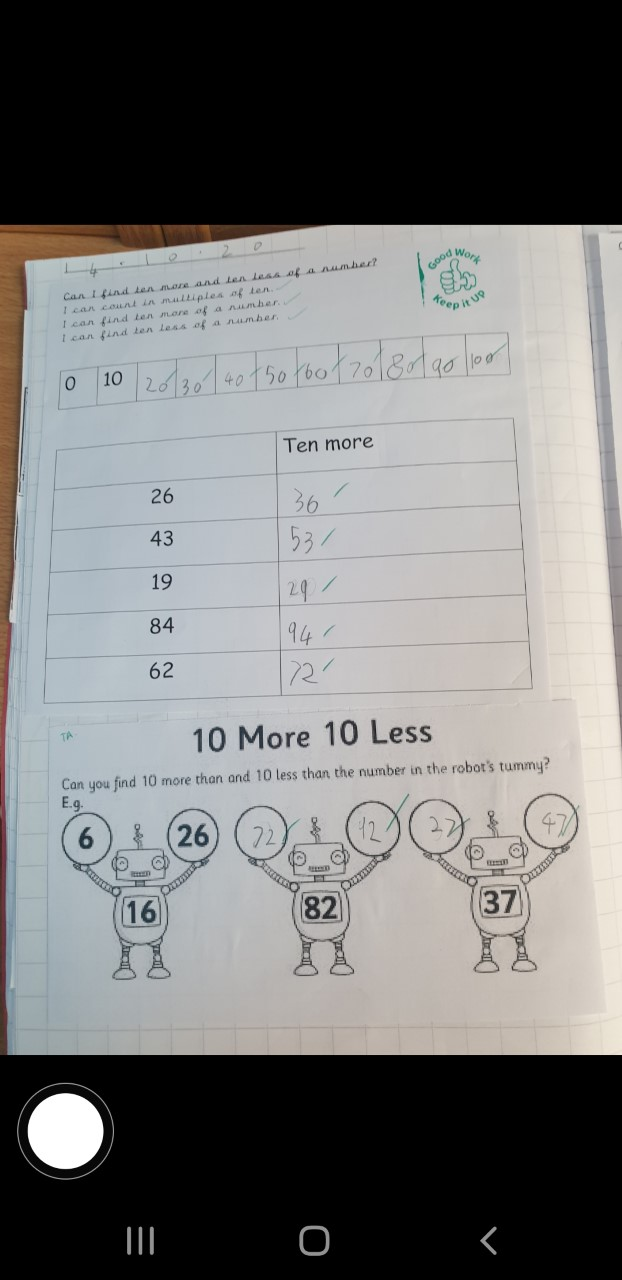 14.10.20
Can I find ten more and ten less of a number?
I can count in multiples of ten.
I can find ten more of a number.
I can find ten less of a number.
Good Work
Keep it Up
0 10 20 30 40 50 60 70 80 90 100
Ten more
26 36
43 53
19 29
84 94
62 72
TA
10 More 10 Less
Can you find 10 more than and 10 less than the number in the robot's tummy?
E.g.
6 26 72 92 27 47
16 82 37